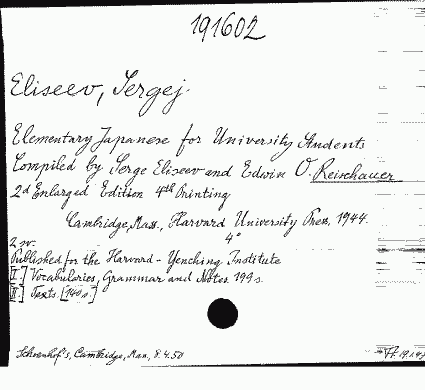 191602
Eliseev, Sergej.
Elementary Japanese for University Students
Compiled by Serge Eliseev and Edwin O. Reischauer
2d Enlarged Edition 4th Printing
Cambridge, Mass., Harvard University Press, 1944.
4°
2 sv.
Published for the Harvard-Yenching Institute
[I.] Vocabularies, Grammar and Notes. 199 s.
[II.] Texts. [140 s.]
Schoenhof's, Cambridge, Mass., 8.4.50